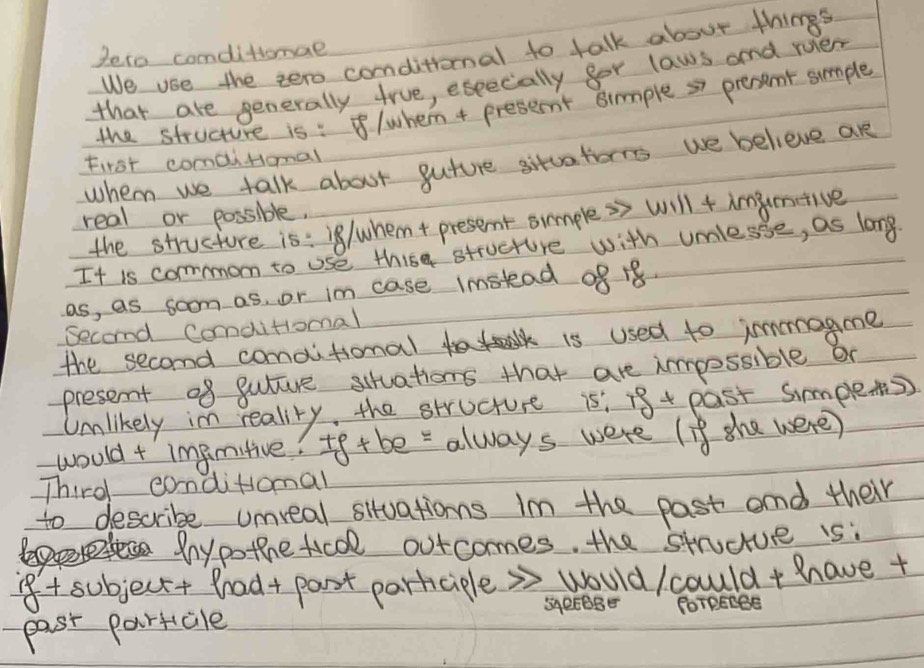 Zero conditionae
We use the zero conditional to talk about things
that are generally true, especially for laws and rules
the structure is: if/when + present simple >> present simple
First conditional
when we talk about future situations we believe are
real or possible.
the structure is: if/when + present simple >> will + infinitive
It is common to use this structure with unlesse, as long
as, as soon as, or in case instead of if.
Second Conditional
the second conditional is used to immagine
present of future situations that are impossible or
unlikely in reality. the structure is: if + past simple >>
would + infinitive! If + be = always were (if she were)
Third conditional
to describe unreal situations in the past and their
hypothetical outcomes. the structure is:
if + subject + had + past participle >> would/could + have +
SAREBBE POTREBBE
past particle